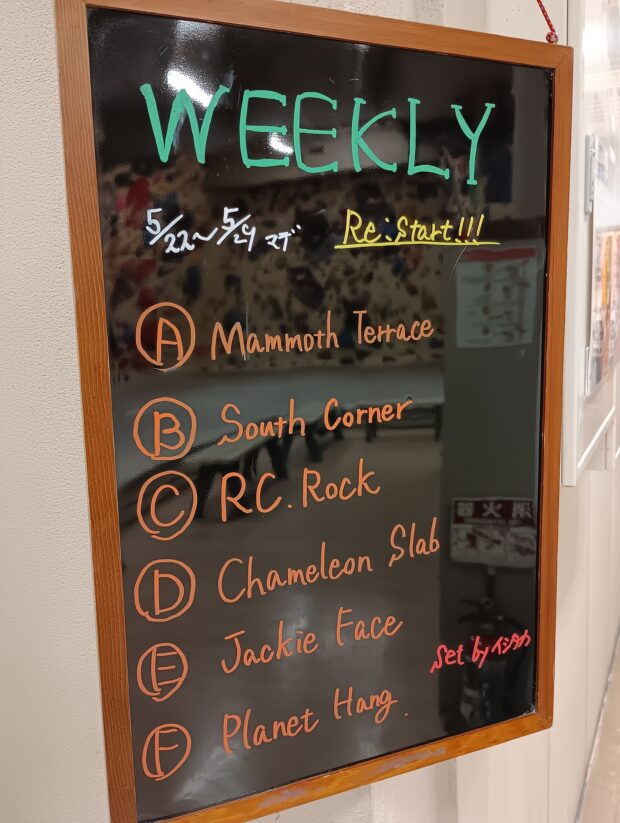 WEEKLY
5/22～5/29 マデ
Re:Start!!!
Ⓐ Mammoth Terrace
Ⓑ South Corner
Ⓒ RC.Rock
Ⓓ Chameleon Slab
Ⓔ Jackie Face
Ⓕ Planet Hang.
Set by イシタカ